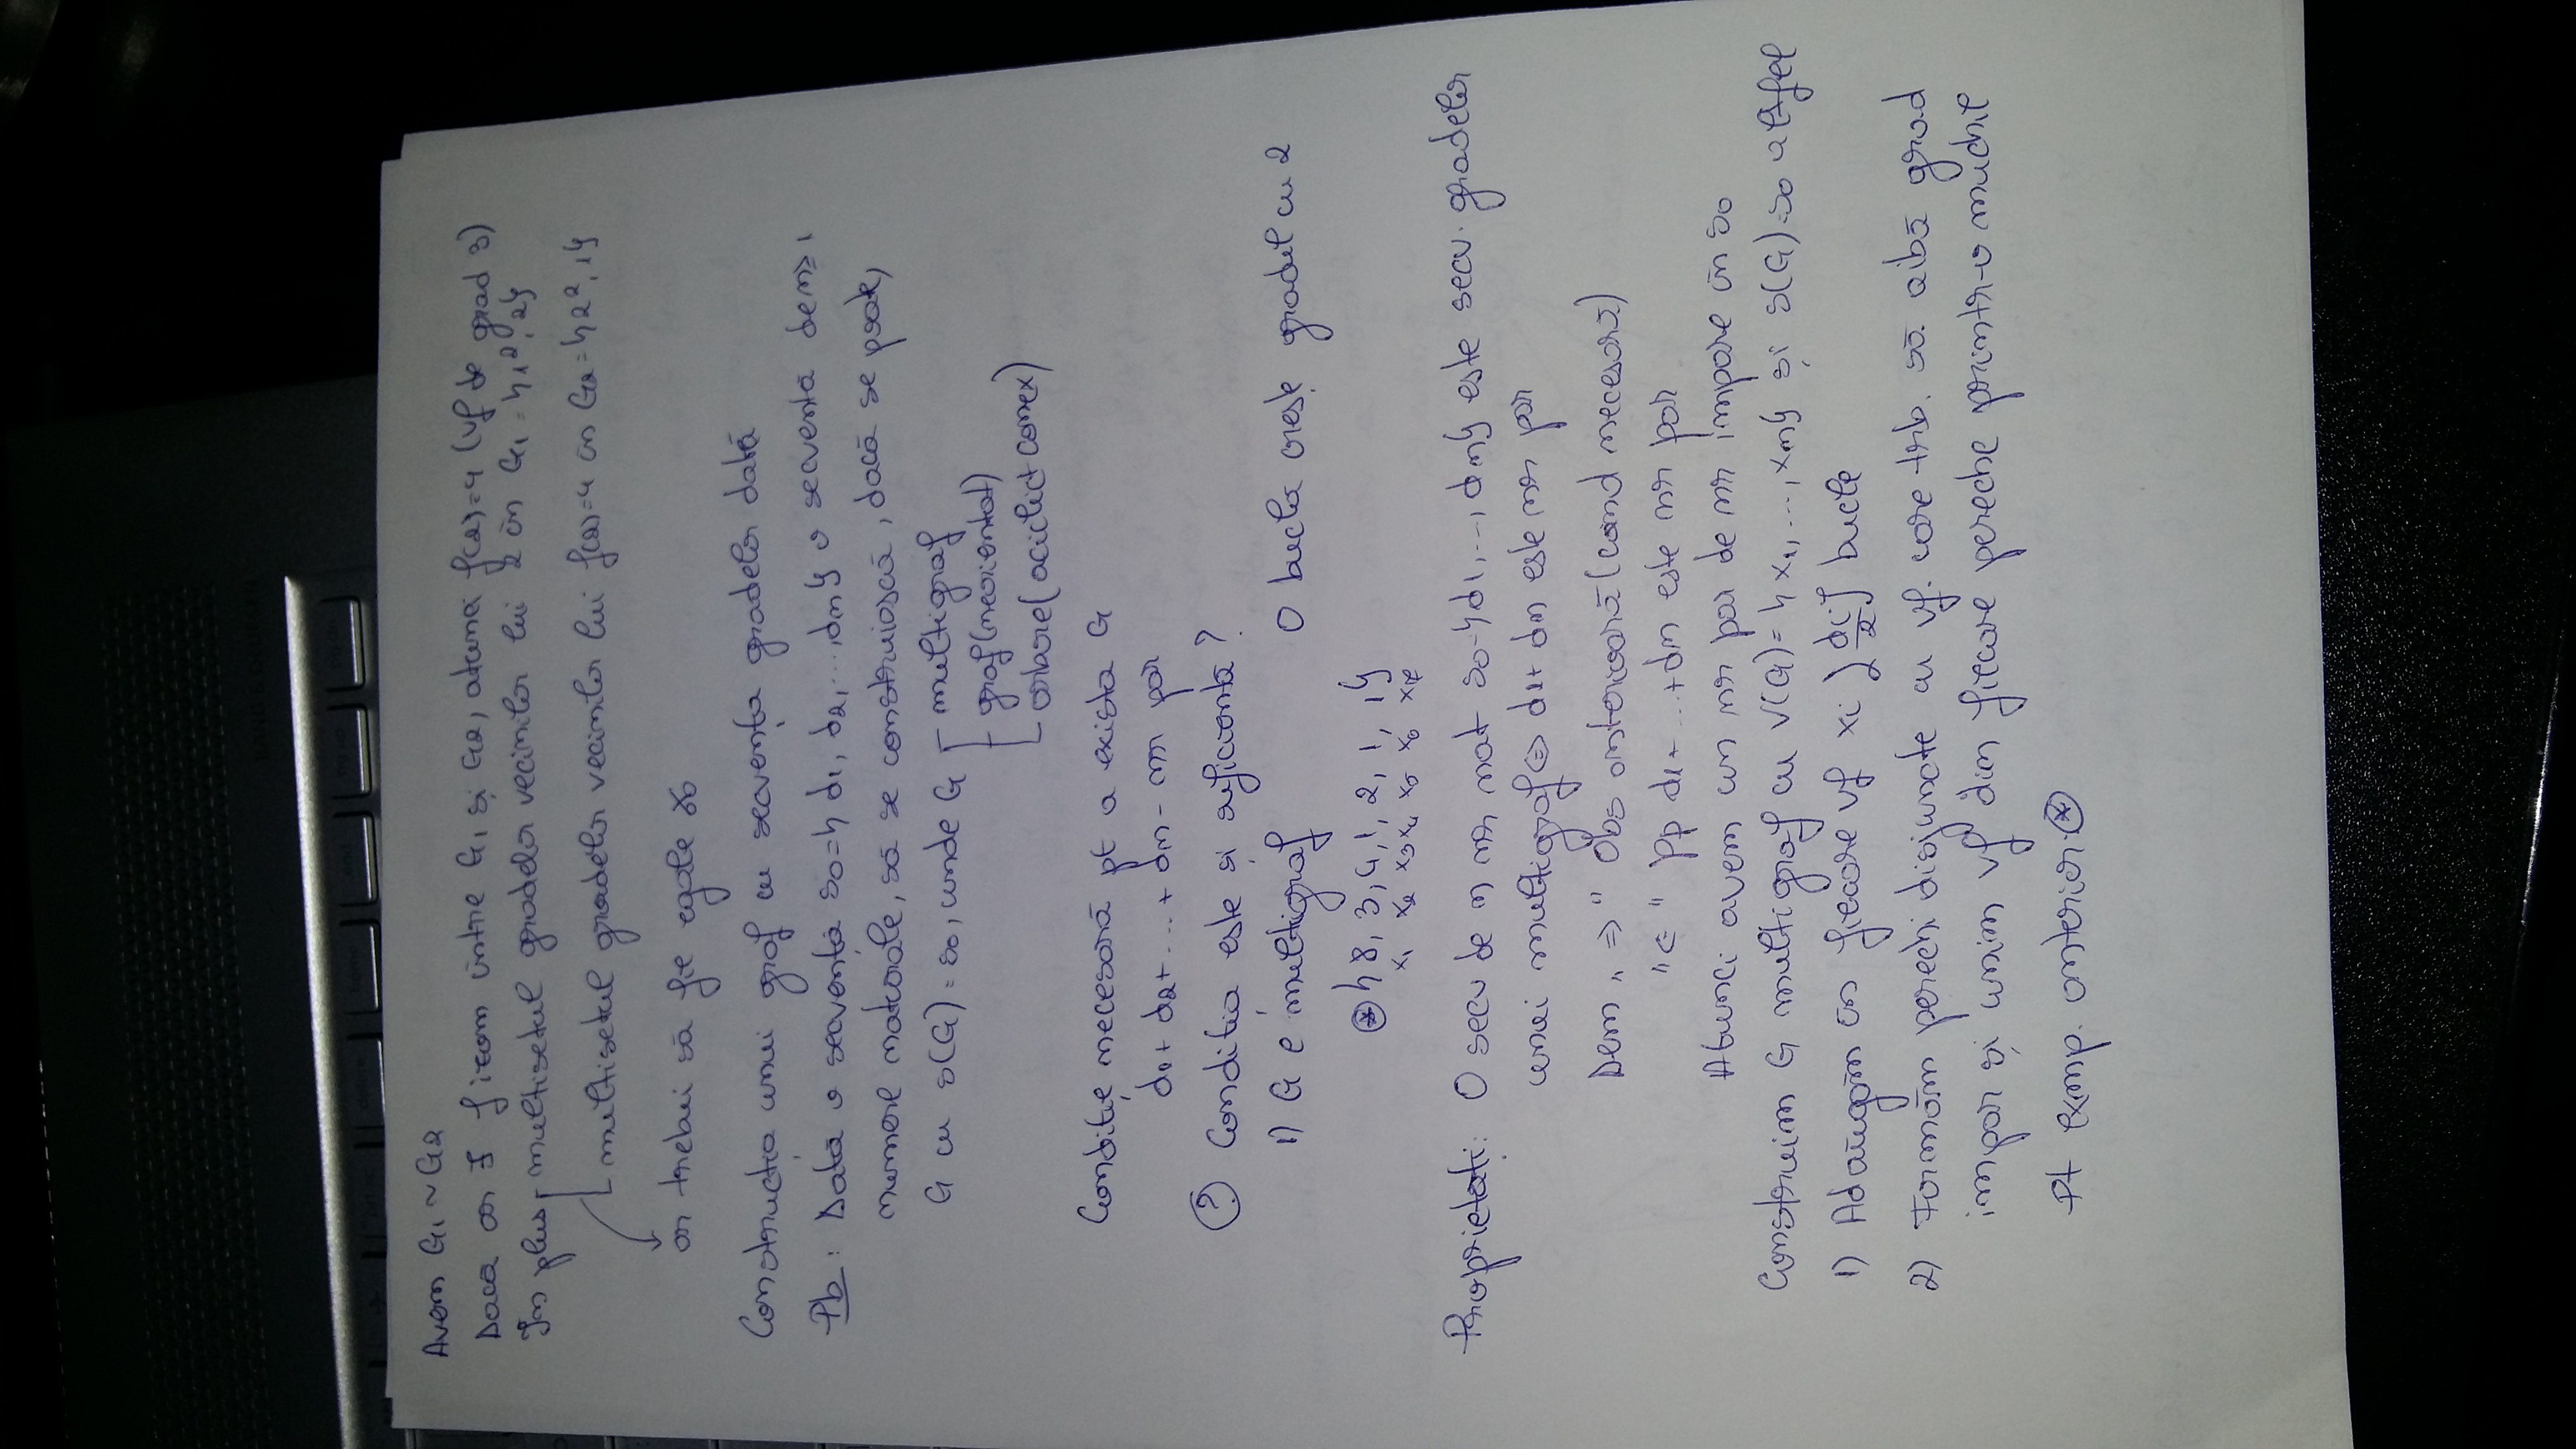 BANG & OLUFSEN
delete home end pg up pg dn
Avem G1 ~ G2
Dacă ar ∃ f izom între G1 și G2, atunci f(2)=4 (vf de grad 3)
În plus, multisetul gradelor vecinilor lui 2 în G1 = {1², 2}
multisetul gradelor vecinilor lui f(2)=4 în G2 = {2², 1}
ar trebui să fie egale
Construcția unui graf cu secvența gradelor dată
Pb: Dată o secvență s0={d1, d2, ..., dn} o secvență de n≥1
numere naturale, să se construiască, dacă se poate,
G cu s(G)=s0, unde G - multigraf
- graf(neorientat)
- arbore(aciclic+conex)
Condiție necesară pt a exista G
d1+d2+...+dn - nr par
? Condiția este și suficientă?
1) G e multigraf O buclă crește gradul cu 2
* {8, 3, 4, 1, 2, 1, 1}
x1 x2 x3 x4 x5 x6 x7
Proprietăți: O secv de n nr nat s0={d1,...,dn} este secv. gradelor
unui multigraf ⇔ d1+ dn este nr par
Dem „⇒" Obs anterioară (cond necesară)
"⇐" pp d1+...+dn este nr par
Atunci avem un nr par de nr impare în s0
Construim G multigraf cu V(G)={x1,...,xn} și s(G)=s0 altfel
1) Adăugăm în fiecare vf xi [di/2] bucle
2) Formăm perechi disjuncte cu vf. care trb. să aibă grad
impar și unim vf din fiecare pereche printr-o muchie
Pt exmp. anterior: *